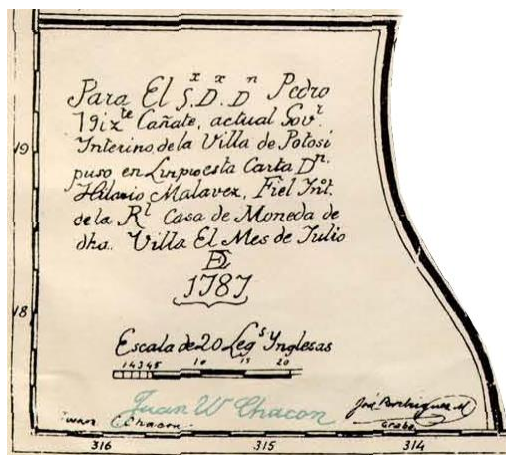 Para El S.ʳ D. Dⁿ Pedro
Cañate, actual Govʳ
Interino de la Villa de Potosi
puso en Limpio esta Carta Dⁿ.
Hilario Malavez, Fiel Intº.
de la Rˡ Casa de Moneda de
dha.. Villa El Mes de Julio
DE
1787
Escala de 20 Legˢ Ynglesas
1 2 3 4 5 10 15 20
Juan W Chacon
José Rodriguez M
Chacon.
Grabó
19
18
316 315 314